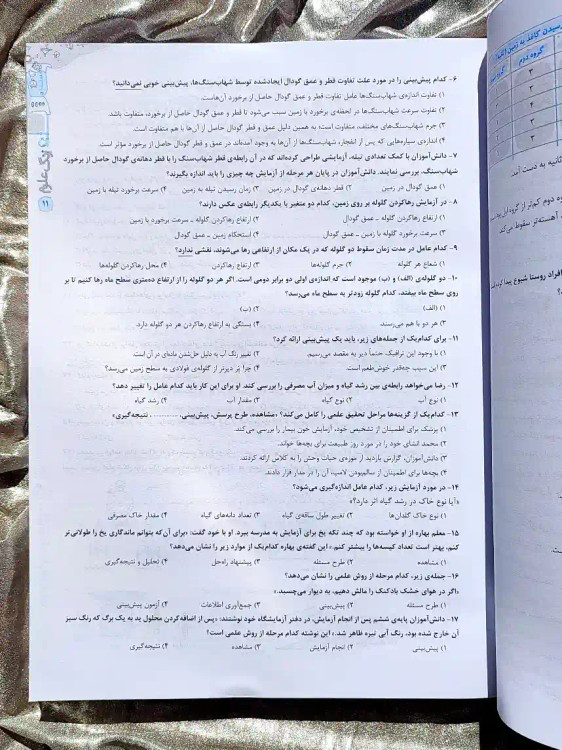 ۶- کدام پیش‌بینی را در مورد علت تفاوت قطر و عمق گودال ایجادشده توسط شهاب‌سنگ‌ها، پیش‌بینی خوبی نمی‌دانید؟
۱) تفاوت اندازه‌ی شهاب‌سنگ‌ها عامل تفاوت قطر و عمق گودال حاصل از برخورد آن‌هاست.
۲) تفاوت سرعت شهاب‌سنگ‌ها در لحظه‌ی برخورد با زمین سبب می‌شود تا قطر و عمق گودال حاصل از برخورد، متفاوت باشد.
۳) جرم شهاب‌سنگ‌های مختلف، متفاوت است؛ به همین دلیل عمق و قطر گودال حاصل از آن‌ها با هم متفاوت است.
۴) اندازه‌ی سیاره‌هایی که پس از انفجار، شهاب‌سنگ‌ها از آن‌ها به وجود آمده‌اند در عمق و قطر گودال حاصل از برخورد مؤثر است.
۷- دانش‌آموزان با کمک تعدادی تیله، آزمایشی طراحی کرده‌اند که در آن رابطه‌ی قطر شهاب‌سنگ را با قطر دهانه‌ی گودال حاصل از برخورد
شهاب‌سنگ، بررسی نمایند. دانش‌آموزان در پایان هر مرحله از آزمایش چه چیزی را باید اندازه بگیرند؟
۱) عمق گودال در زمین ۲) قطر دهانه‌ی گودال در زمین ۳) زمان رسیدن تیله به زمین ۴) سرعت برخورد تیله با زمین
۸- در آزمایش رهاکردن گلوله بر روی زمین، کدام دو متغیر با یکدیگر رابطه‌ی عکس دارند؟
۱) ارتفاع رهاکردن گلوله ـ عمق گودال ۲) ارتفاع رهاکردن گلوله ـ سرعت برخورد با زمین
۳) سرعت برخورد گلوله با زمین ـ عمق گودال ۴) استحکام زمین ـ عمق گودال
۹- کدام عامل در مدت زمان سقوط دو گلوله که در یک مکان از ارتفاعی رها می‌شوند، نقشی ندارد؟
۱) شعاع هر گلوله ۲) جرم گلوله‌ها ۳) ارتفاع رهاکردن ۴) محل رهاکردن گلوله‌ها
۱۰- دو گلوله‌ی (الف) و (ب) موجود است که اندازه‌ی اولی دو برابر دومی است. اگر هر دو گلوله را از ارتفاع ده‌متری سطح ماه رها کنیم تا بر
روی سطح ماه بیفتد، کدام گلوله زودتر به سطح ماه می‌رسد؟
۱) (الف) ۲) (ب)
۳) هر دو با هم می‌رسند. ۴) بستگی به ارتفاع رهاکردن هر دو گلوله دارد.
۱۱- برای کدام‌یک از جمله‌های زیر، باید یک پیش‌بینی ارائه کرد؟
۱) با وجود این ترافیک حتماً دیر به مقصد می‌رسیم. ۲) تغییر رنگ آب به دلیل حل‌شدن ماده‌ای در آن است.
۳) این سیب چه‌قدر خوش‌طعم است. ۴) چرا پَر دیرتر از گلوله‌ی فولادی به سطح زمین می‌رسد؟
۱۲- رضا می‌خواهد رابطه‌ی بین رشد گیاه و میزان آب مصرفی را بررسی کند. او برای این کار باید کدام عامل را تغییر دهد؟
۱) نوع آب ۲) نوع گیاه ۳) مقدار آب ۴) رشد گیاه
۱۳- کدام‌یک از گزینه‌ها مراحل تحقیق علمی را کامل می‌کند؟ «مشاهده، طرح پرسش، پیش‌بینی، ............ ، نتیجه‌گیری»
۱) پزشک برای اطمینان از تشخیص خود، آزمایش خون بیمار را بررسی می‌کند.
۲) محمد انشای خود را در مورد روز طبیعت برای بچه‌ها خواند.
۳) دانش‌آموزان، گزارش بازدید از موزه‌ی حیات وحش را به کلاس ارائه کردند.
۴) بچه‌ها برای اطمینان از سالم‌بودن لامپ، آن را در مدار قرار دادند.
۱۴- در مورد آزمایش زیر، کدام عامل اندازه‌گیری می‌شود؟
«آیا نوع خاک در رشد گیاه اثر دارد؟»
۱) نوع خاک گلدان‌ها ۲) تغییر طول ساقه‌ی گیاه ۳) تعداد دانه‌های گیاه ۴) مقدار خاک مصرفی
۱۵- معلم بهاره از او خواسته بود که چند تکه یخ برای آزمایش به مدرسه ببرد. او با خود گفت: «برای آن‌که بتوانم ماندگاری یخ را طولانی‌تر
کنم، بهتر است تعداد کیسه‌ها را بیشتر کنم.» این گفته‌ی بهاره کدام‌یک از موارد زیر را نشان می‌دهد؟
۱) مشاهده ۲) طرح مسئله ۳) پیشنهاد راه‌حل ۴) تحلیل و نتیجه‌گیری
۱۶- جمله‌ی زیر، کدام مرحله از روش علمی را نشان می‌دهد؟
«اگر در هوای خشک بادکنک را مالش دهیم، به دیوار می‌چسبد.»
۱) طرح مسئله ۲) پیش‌بینی ۳) جمع‌آوری اطلاعات ۴) آزمون پیش‌بینی
۱۷- دانش‌آموزان پایه‌ی ششم پس از انجام آزمایش، در دفتر آزمایشگاه خود نوشتند: «پس از اضافه‌کردن محلول ید به یک برگ که رنگ سبز
آن خارج شده بود، رنگ آبی تیره ظاهر شد.» این نوشته کدام مرحله از روش علمی است؟
۱) پیش‌بینی ۲) انجام آزمایش ۳) مشاهده ۴) نتیجه‌گیری
۱۱
گروه دوم
۳
۳
۳
ثانیه به دست آمد.